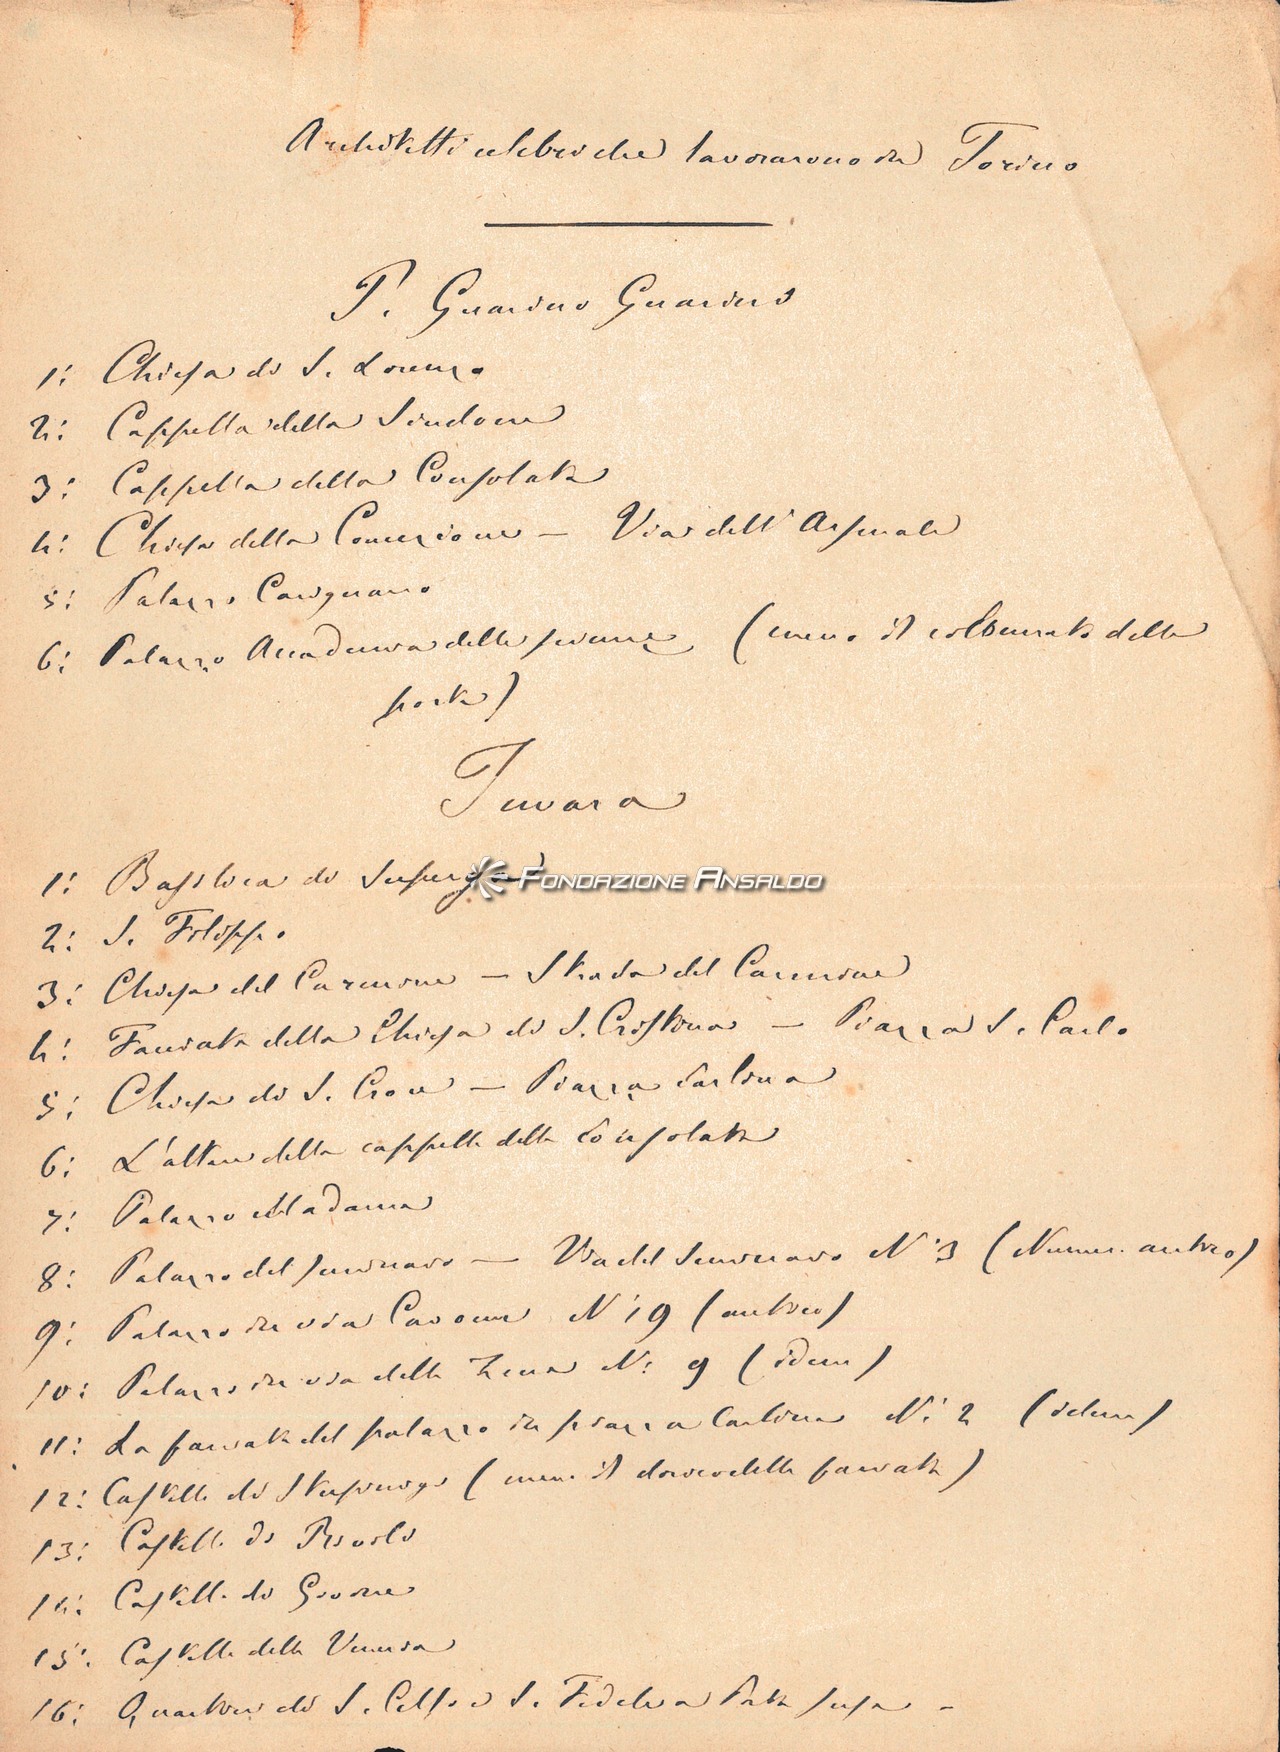 Architetti celebri che lavorarono in Torino
P. Guarino Guarini
1: Chiesa di S. Lorenzo
2: Cappella della Sindone
3: Cappella della Consolata
4: Chiesa della Concezione — Via dell'Arsenale
5: Palazzo Carignano
6: Palazzo Accademia delle scienze (meno il colonnato della
porta)
Juvara
1: Basilica di Superga
2: S. Filippo
3: Chiesa del Carmine — Strada del Carmine
4: Facciata della Chiesa di S. Cristina — Piazza S. Carlo
5: Chiesa di S. Croce — Piazza Carlina
6: L'altare della cappella della Consolata
7: Palazzo Madama
8: Palazzo del seminario — Via del Seminario N. 3 (Numer. antico)
9: Palazzo in via Cavour N. 19 (antico)
10: Palazzo in via della Zecca N: 9 (idem)
11: La facciata del palazzo in piazza Carlina N: 2 (idem)
12: Castello di Stupinigi (meno il dorico della facciata)
13: Castello di Rivoli
14: Castello di Govone
15: Castello della Veneria
16: Quartieri di S. Celso e S. Fedele a Porta Susa —
FONDAZIONE ANSALDO